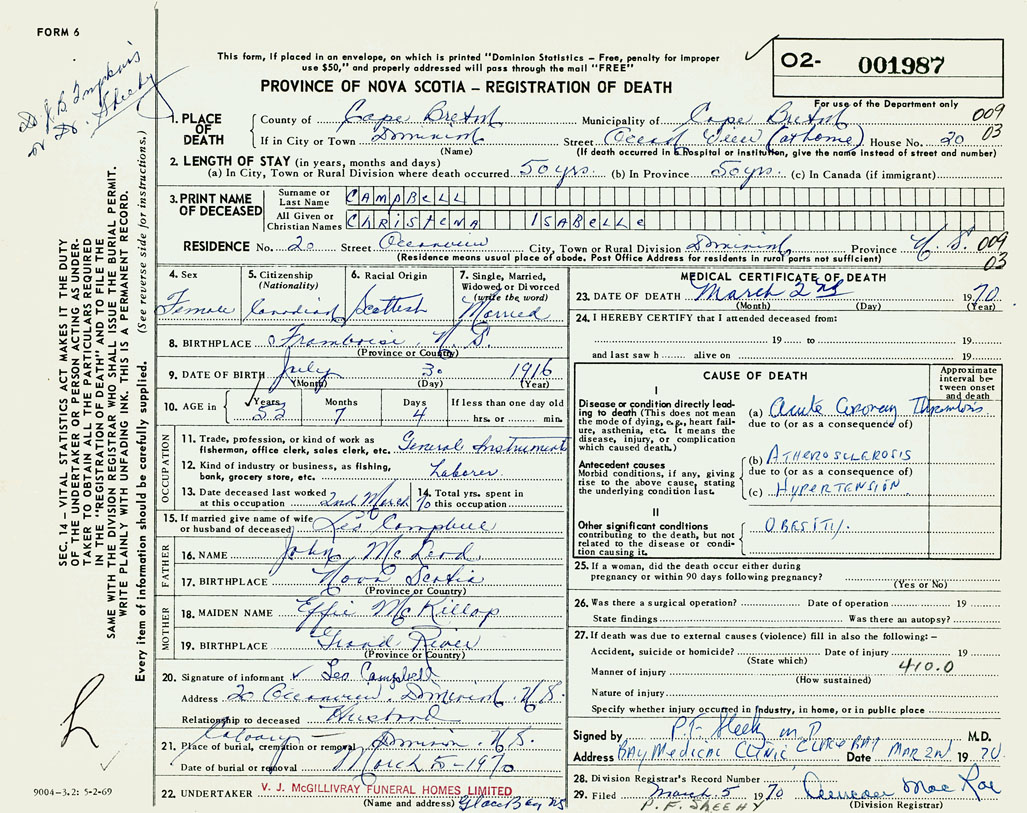 FORM 6
Dr. J B Tompkins
or Dr. Sheehy
This form, if placed in an envelope, on which is printed "Dominion Statistics – Free, penalty for improper
use $50," and properly addressed will pass through the mail "FREE"
PROVINCE OF NOVA SCOTIA – REGISTRATION OF DEATH
O2- 001987
For use of the Department only
009
03
1. PLACE OF DEATH
County of Cape Breton Municipality of Cape Breton
If in City or Town Dominion Street Ocean View (at home) House No. 20
(Name) (If death occurred in hospital or institution, give the name instead of street and number)
2. LENGTH OF STAY (in years, months and days)
(a) In City, Town or Rural Division where death occurred 50 yrs. (b) In Province 50 yrs. (c) In Canada (if immigrant)
3. PRINT NAME OF DECEASED
Surname or Last Name CAMPBELL
All Given or Christian Names CHRISTENA ISABELLE
RESIDENCE No. 20 Street Oceanview City, Town or Rural Division Dominion Province N. S. 009
03
(Residence means usual place of abode. Post Office Address for residents in rural parts not sufficient)
4. Sex
Female
5. Citizenship
(Nationality)
Canadian
6. Racial Origin
Scottish
7. Single, Married,
Widowed or Divorced
(write the word)
Married
8. BIRTHPLACE Framboise, N. S.
(Province or Country)
9. DATE OF BIRTH July 30 1916
(Month) (Day) (Year)
10. AGE in Years Months Days If less than one day old
53 7 4 hrs. or min.
OCCUPATION
11. Trade, profession, or kind of work as
fisherman, office clerk, sales clerk, etc. General Instrument
12. Kind of industry or business, as fishing,
bank, grocery store, etc. Laborer
13. Date deceased last worked
at this occupation 2nd March 70
14. Total yrs. spent in
this occupation
15. If married give name of wife
or husband of deceased Leo Campbell
FATHER
16. NAME John McLeod
17. BIRTHPLACE Nova Scotia
(Province or Country)
MOTHER
18. MAIDEN NAME Effie McKillop
19. BIRTHPLACE Grand River
(Province or Country)
20. Signature of informant Leo Campbell
Address 20 Oceanview, Dominion N.S.
Relationship to deceased Husband
Calvary –
21. Place of burial, cremation or removal Dominion N.S.
Date of burial or removal March 5 - 1970
22. UNDERTAKER V. J. McGILLIVRAY FUNERAL HOMES LIMITED
(Name and address) Glace Bay NS
MEDICAL CERTIFICATE OF DEATH
23. DATE OF DEATH March 2nd 1970
(Month) (Day) (Year)
24. I HEREBY CERTIFY that I attended deceased from:
19 to 19
and last saw h alive on 19
CAUSE OF DEATH
Approximate
interval be-
tween onset
and death
I
Disease or condition directly lead-
ing to death (This does not mean
the mode of dying, e.g., heart fail-
ure, asthenia, etc. It means the
disease, injury, or complication
which caused death.)
(a) Acute Coronary Thrombosis
due to (or as a consequence of)
Antecedent causes
Morbid conditions, if any, giving
rise to the above cause, stating
the underlying condition last.
(b) ATHEROSCLEROSIS
due to (or as a consequence of)
(c) HYPERTENSION.
II
Other significant conditions
contributing to the death, but not
related to the disease or condi-
tion causing it.
OBESITY.
25. If a woman, did the death occur either during
pregnancy or within 90 days following pregnancy?
(Yes or No)
26. Was there a surgical operation? Date of operation 19
State findings Was there an autopsy?
27. If death was due to external causes (violence) fill in also the following:–
Accident, suicide or homicide? Date of injury 19
(State which)
410.0
Manner of injury
(How sustained)
Nature of injury
Specify whether injury occurred in industry, in home, or in public place
Signed by P.F. Sheehy MD M.D.
Address BAY MEDICAL CLINIC GLACE BAY Date MAR 2nd 1970.
28. Division Registrar's Record Number
29. Filed March 5 1970
P. F. SHEEHY
(Division Registrar)
SEC. 14 – VITAL STATISTICS ACT MAKES IT THE DUTY
OF THE UNDERTAKER OR PERSON ACTING AS UNDER-
TAKER TO OBTAIN ALL THE PARTICULARS REQUIRED
IN THE "REGISTRATION OF DEATH" AND TO FILE THE
SAME WITH THE DIVISION REGISTRAR WHO SHALL ISSUE THE BURIAL PERMIT.
WRITE PLAINLY WITH UNFADING INK. THIS IS A PERMANENT RECORD.
Every item of information should be carefully supplied. (See reverse side for instructions.)
9004-3.2: 5-2-69